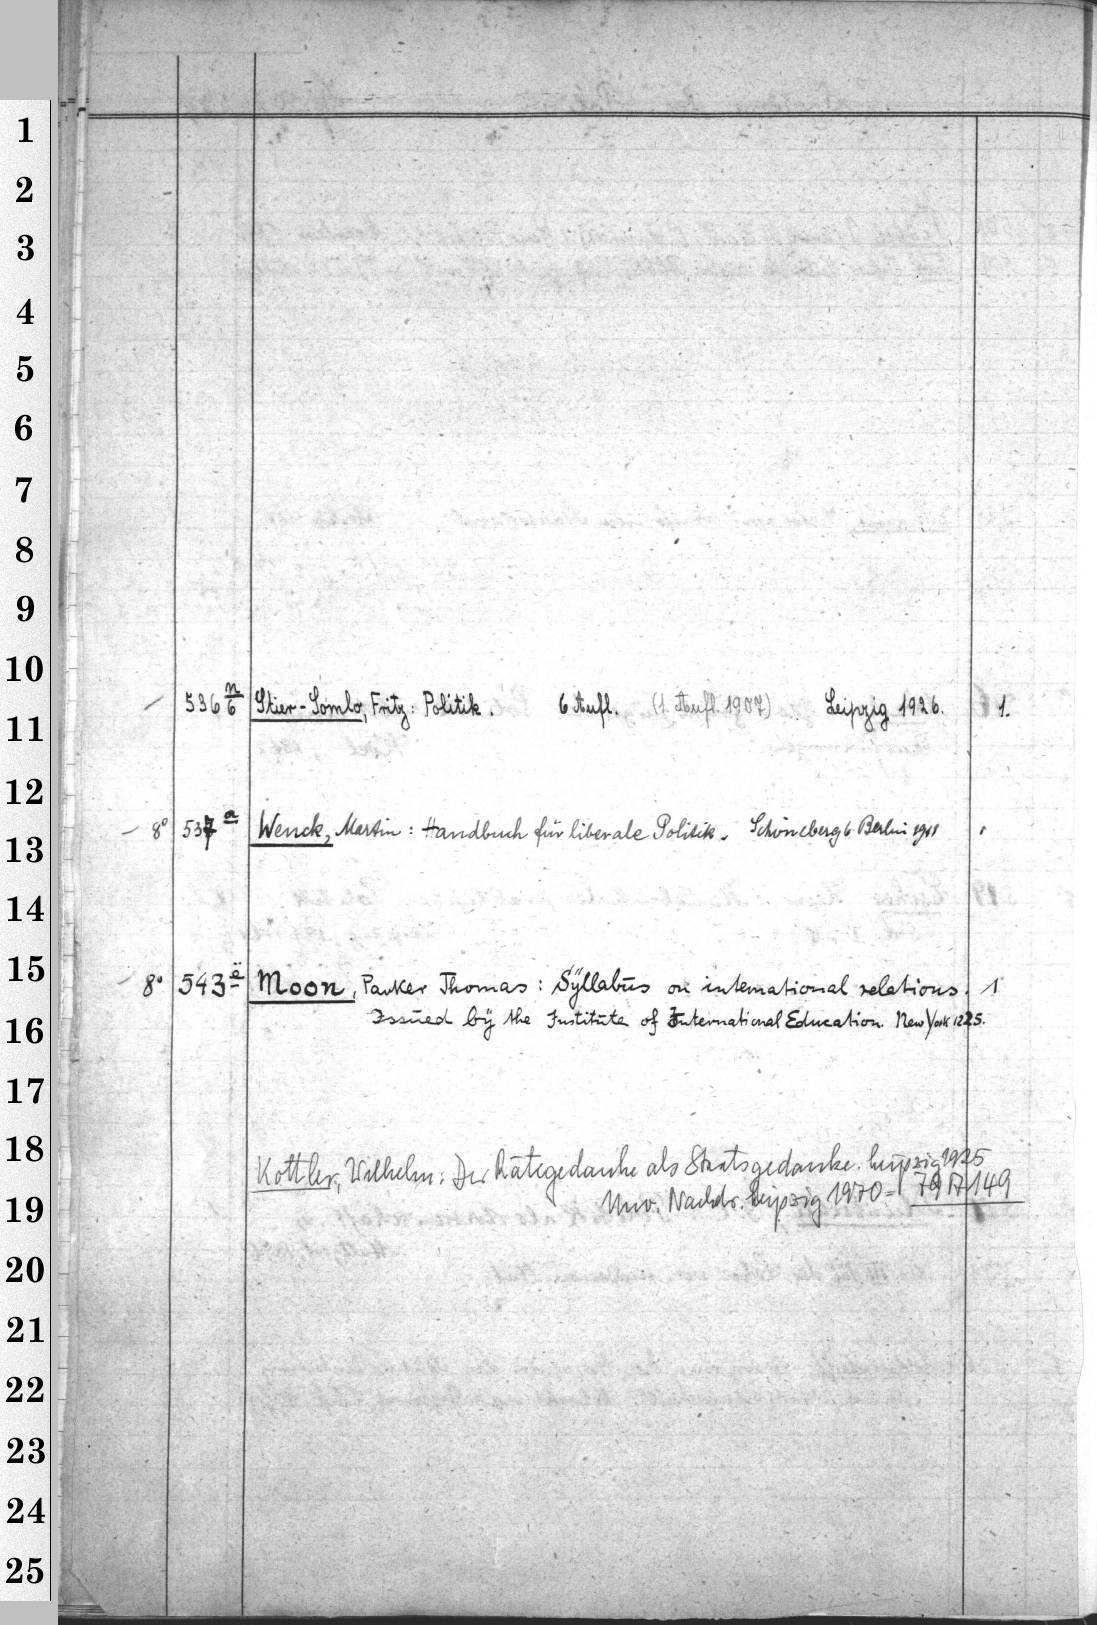 1
2
3
4
5
6
7
8
9
10
536 n/6 Stier-Somlo, Fritz: Politik. 6 Aufl. (1. Aufl. 1907) Leipzig 1926. 1.
11
12
8° 537 a Wenck, Martin: Handbuch für liberale Politik. Schöneberg b. Berlin 1911
13
14
15
8° 543 ë Moon, Parker Thomas: Syllabus on international relations. 1
Issued by the Institute of International Education. New York 1225.
16
17
18
Kottler, Wilhelm: Der Rätegedanke als Staatsgedanke. Leipzig 1925
Unv. Nachdr. Leipzig 1970 = 79 A 149
19
20
21
22
23
24
25